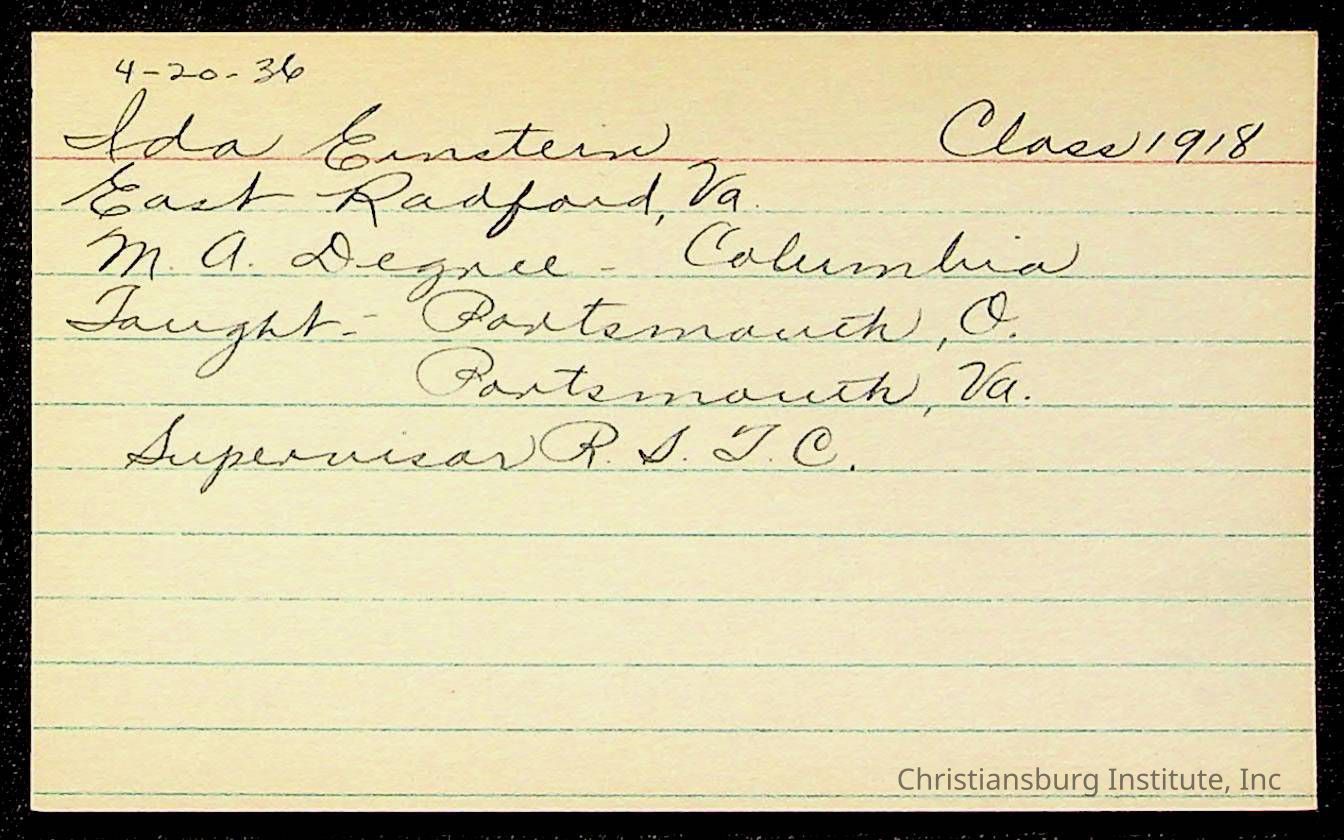 4-20-36
Ida Einstein Class 1918
East Radford, Va.
M. A. Degree - Columbia
Taught - Portsmouth, O.
Portsmouth, Va.
Supervisor R. S. T. C.
Christiansburg Institute, Inc